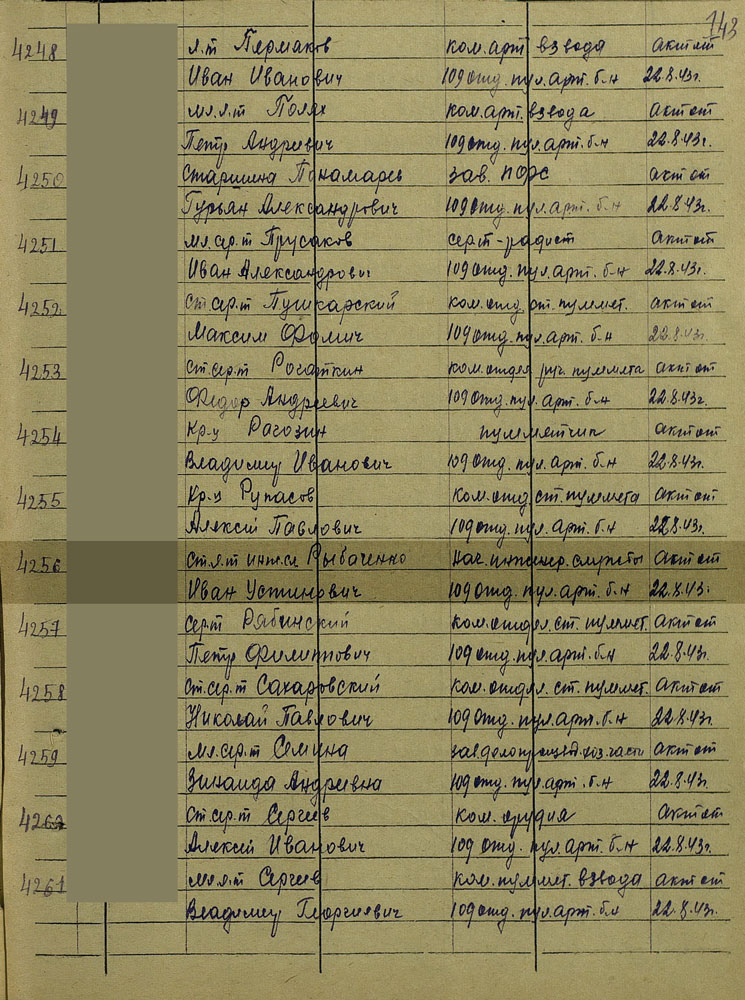 143
4248 л-т Пермаков ком. арт. взвода акт от
Иван Иванович 109 отд. пул. арт. б-н 22.8.43г.
4249 мл. л-т Полях ком. арт. взвода акт от
Петр Андреевич 109 отд. пул. арт. б-н 22.8.43г.
4250 Старшина Панамарев зав. ПФС акт от
Гурьян Александрович 109 отд. пул. арт. б-н 22.8.43г.
4251 мл. сер-т Прусаков серт-радист акт от
Иван Александрович 109 отд. пул. арт. б-н 22.8.43г.
4252 ст. сер-т Пушкарский ком. отд. ст. пулмет. акт от
Максим Фомич 109 отд. пул. арт. б-н 22.8.43г.
4253 ст. сер-т Рогаткин ком. отдел. руч. пулмета акт от
Федор Андреевич 109 отд. пул. арт. б-н 22.8.43г.
4254 Кр-ц Рагозин пулметчик акт от
Владимир Иванович 109 отд. пул. арт. б-н 22.8.43г.
4255 Кр-ц Рупасов ком. отд. ст. пулмета акт от
Алексей Павлович 109 отд. пул. арт. б-н 22.8.43г.
4256 ст. л-т инж. сл. Рыбаченко нач. инженер. службы акт от
Иван Устинович 109 отд. пул. арт. б-н 22.8.43г.
4257 сер-т Рябинский ком. отдел. ст. пулмет. акт от
Петр Филиппович 109 отд. пул. арт. б-н 22.8.43г.
4258 ст. сер-т Сахаровский ком. отдел. ст. пулмет. акт от
Николай Павлович 109 отд. пул. арт. б-н 22.8.43г.
4259 мл. сер-т Семина зав. делопроизвд. хоз. части акт от
Зинаида Андреевна 109 отд. пул. арт. б-н 22.8.43г.
4260 ст. сер-т Сергеев ком. орудия акт от
Алексей Иванович 109 отд. пул. арт. б-н 22.8.43г.
4261 мл. л-т Сергеев ком. пулмет. взвода акт от
Владимир Георгиевич 109 отд. пул. арт. б-н 22.8.43г.